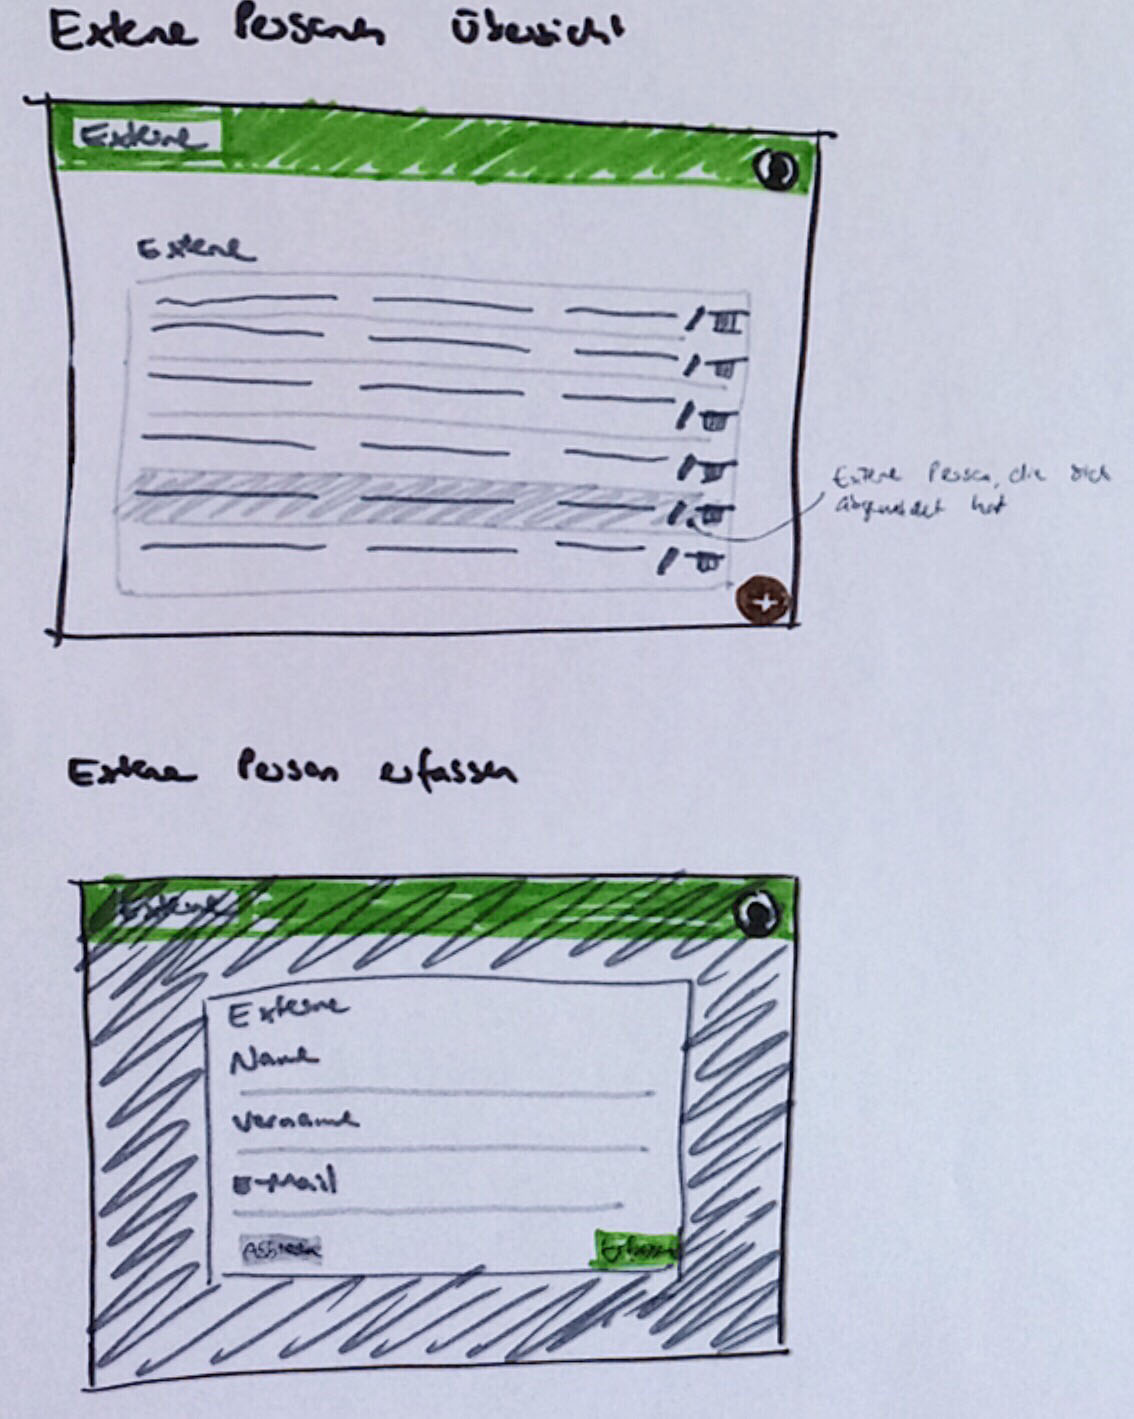 Externe Personen Übersicht
Externe
Externe
Externe Person, die sich
abgemeldet hat
+
Externe Person erfassen
Externe
Externe
Name
Vorname
E-Mail
Abbrechen